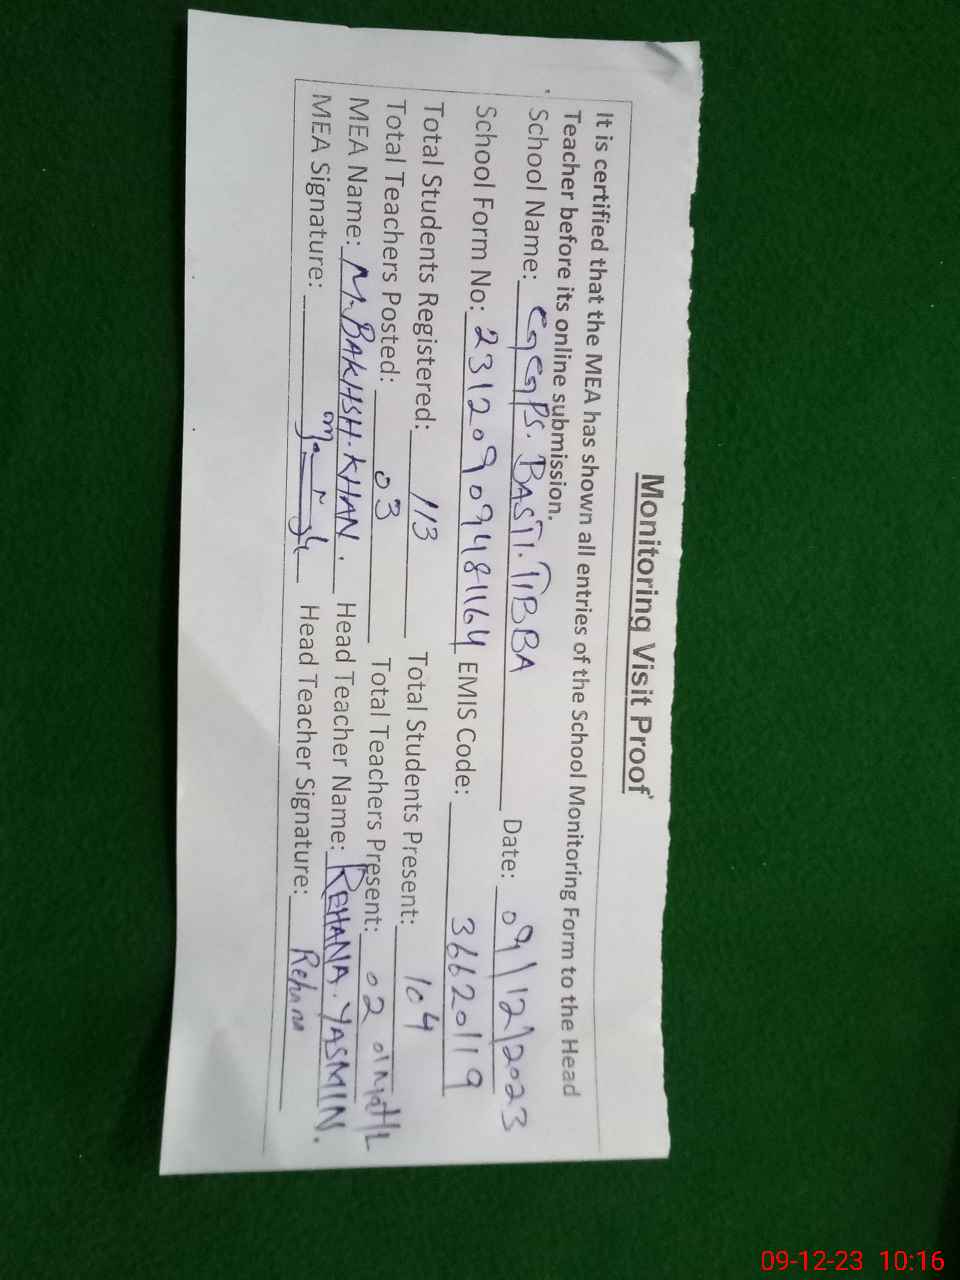 Monitoring Visit Proof
It is certified that the MEA has shown all entries of the School Monitoring Form to the Head
Teacher before its online submission.
School Name: GGPS. BASTI. TIBBA Date: 09/12/2023
School Form No: 23120909481164 EMIS Code: 36620119
Total Students Registered: 113 Total Students Present: 104
Total Teachers Posted: 03 Total Teachers Present: 02 01 Mat/L
MEA Name: M. BAKHSH. KHAN. Head Teacher Name: REHANA. YASMIN.
MEA Signature: Head Teacher Signature: Rehana
09-12-23 10:16